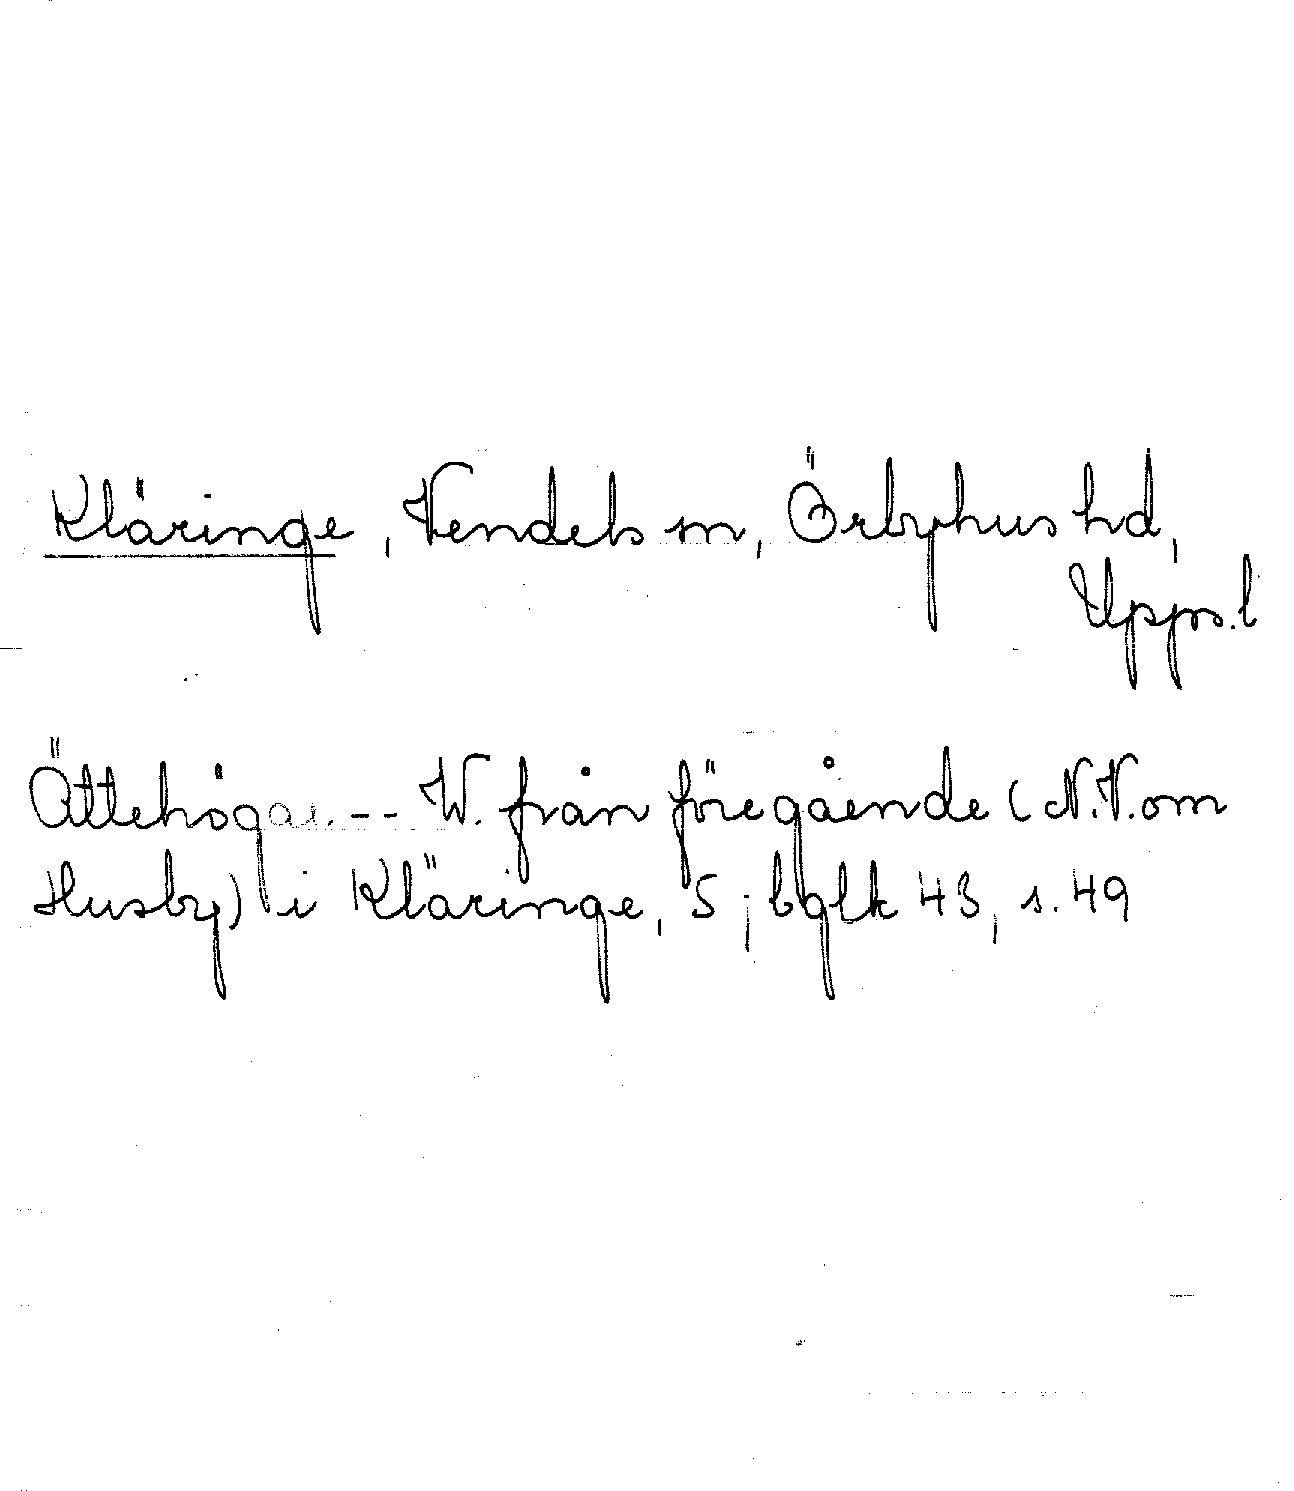 Kläringe, Vendels sn, Örbyhus hd,
Upps. l
Ättehögar. -- W. från föregående (N.V. om
Husby) i Kläringe, S; bglk 43, s. 49